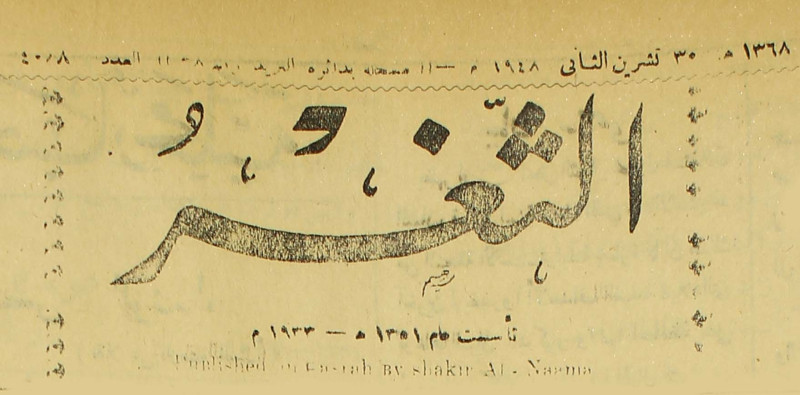 ١٣٦٨ هـ ٣٠ تشرين الثاني ١٩٤٨ م — المسجلة بدائرة البريد العدد
الثغر
تأسست عام ١٣٥١ هـ — ١٩٣٣ م
Published in Basrah By Shakir Al-Naama